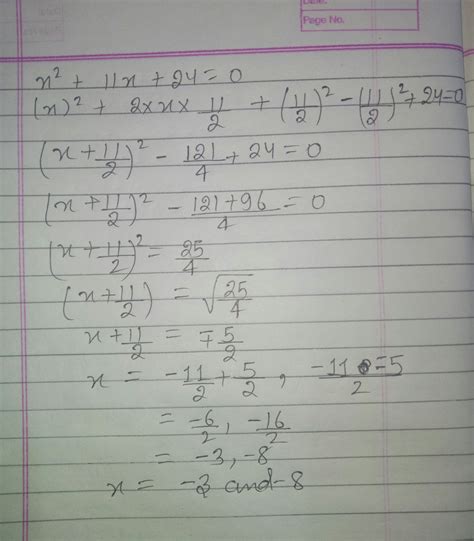 Date.
Page No.
x² + 11x + 24 = 0
(x)² + 2×x× 11/2 + (11/2)² - (11/2)² + 24 = 0
(x + 11/2)² - 121/4 + 24 = 0
(x + 11/2)² - 121+96/4 = 0
(x + 11/2)² = 25/4
(x + 11/2) = √25/4
x + 11/2 = ∓ 5/2
x = -11/2 + 5/2 , -11 - 5/2
= -6/2 , -16/2
= -3, -8
x = -3 and -8